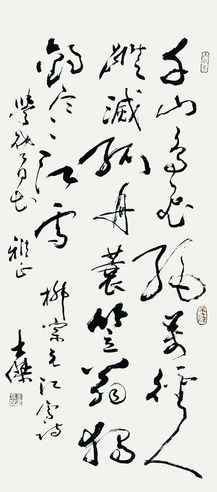 千山鳥飛絕萬徑人
蹤滅孤舟蓑笠翁獨
釣寒江雪
柳宗元江雪詩
雅正
士傑